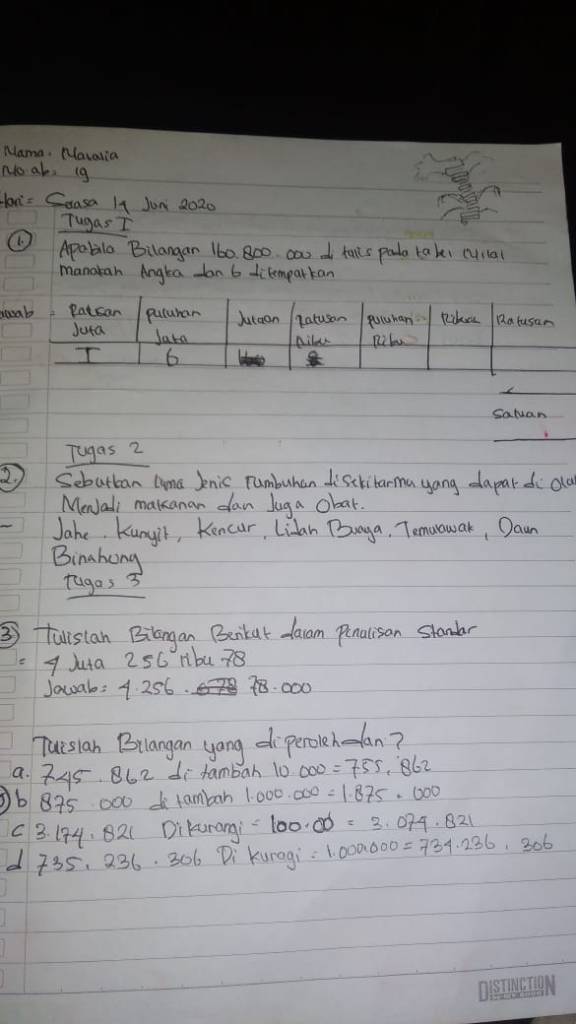 Nama:
No ab: 19
Hari = Selasa 19 Juni 2020
Tugas I
1. Apabila Bilangan 160.800.000 di tulis pada tabel nilai
manakah Angka dan 6 ditempatkan
Jawab = Ratusan Juta | puluhan Juta | Jutaan | Ratusan Ribu | puluhan Ribu | Ribu | Ratusan
I | 6 | | 8
Satuan
Tugas 2
2. Sebutkan Lima Jenis Tumbuhan disekitarmu yang dapat di Olah
Menjadi makanan dan Juga Obat.
- Jahe, Kunyit, Kencur, Lidah Buaya, Temurawak, Daun
Binahong
Tugas 3
3) Tulislah Bilangan Berikut dalam Penulisan Standar
= 4 Juta 256 ribu 78
Jawab = 4.256. 78.000
Tulislah Bilangan yang diperoleh dan?
a. 745.862 di tambah 10.000 = 755.862
b 875.000 di tambah 1.000.000 = 1.875.000
c 3.174.821 Dikurangi = 100.00 = 3.074.821
d 735.236.306 Di kuragi = 1.000.000 = 734.236.306
DISTINCTION